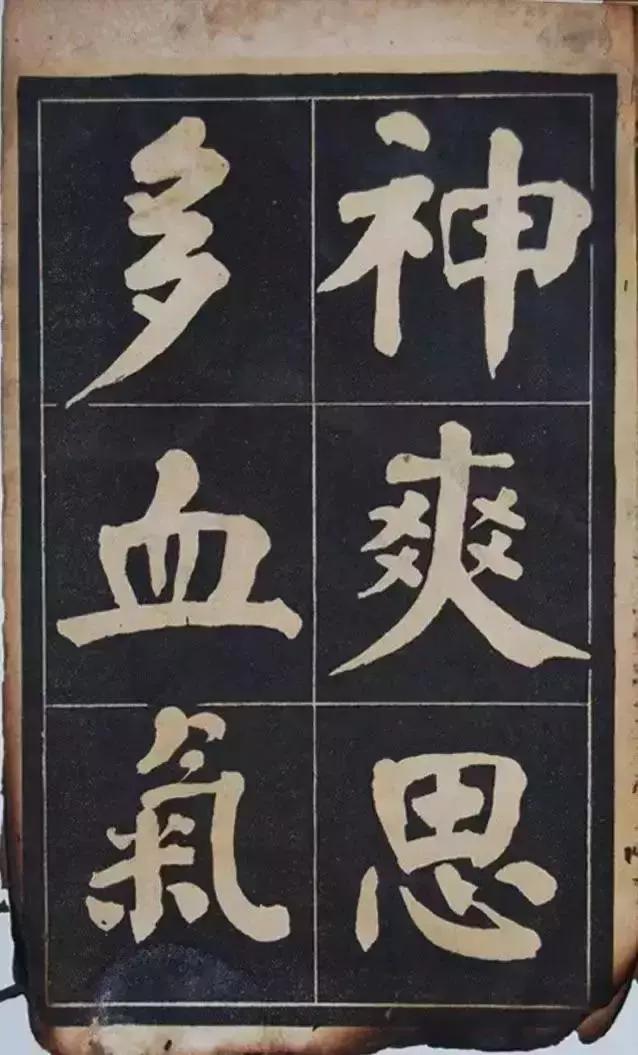 神爽思
多血氣